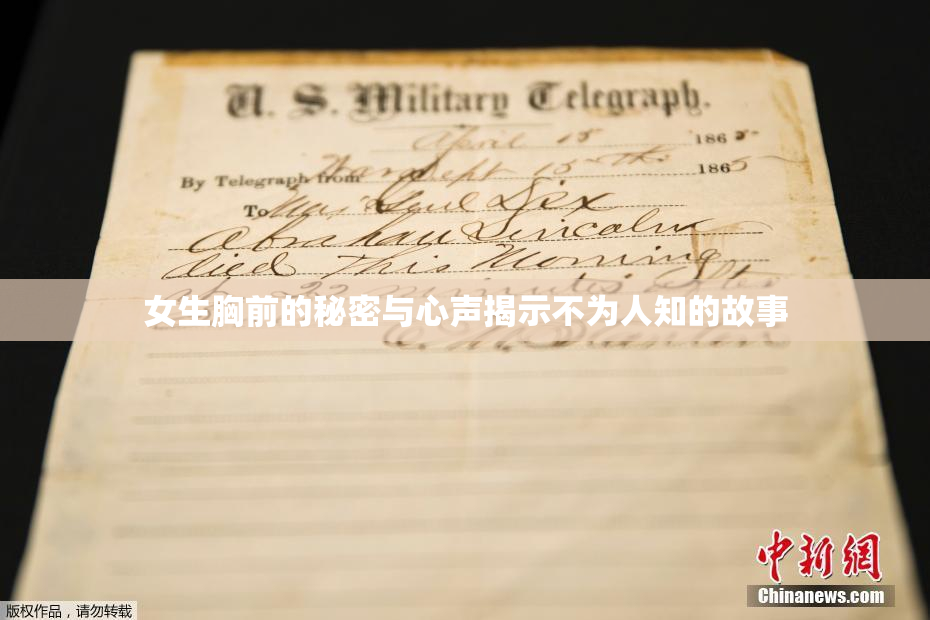 U. S. Military Telegraph.
April 15 1865
By Telegraph from War Dept 15th 1865
To Maj Genl Dix
Abraham Lincoln
died This Morning
at 22 minutes after
女生胸前的秘密与心声揭示不为人知的故事
E. M. Stanton
中新網
Chinanews.com
版权作品,请勿转载